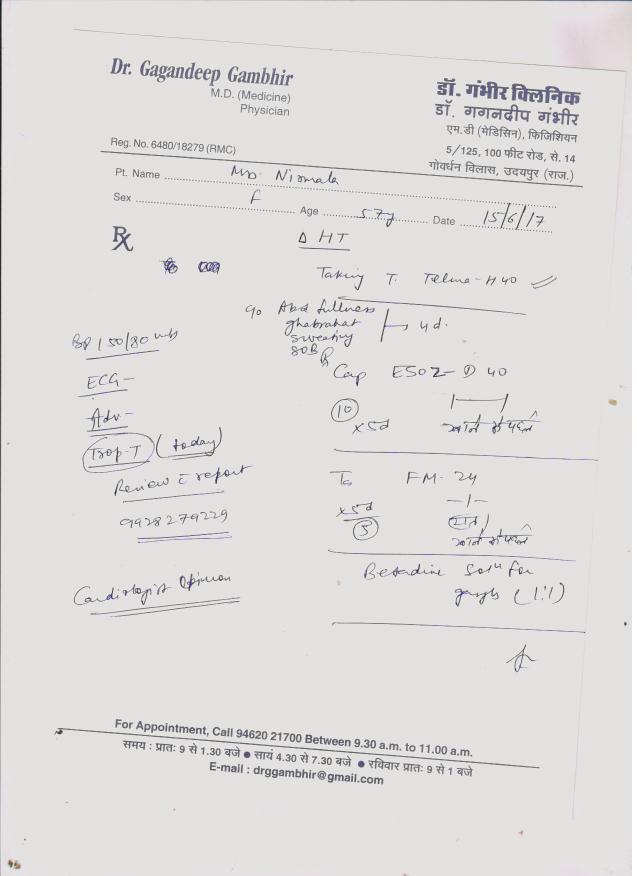 Dr. Gagandeep Gambhir
M.D. (Medicine)
Physician
Reg. No. 6480/18279 (RMC)
डॉ. गंभीर क्लिनिक
डॉ. गगनदीप गंभीर
एम.डी (मेडिसिन), फिजिशियन
5/125, 100 फीट रोड, से. 14
गोवर्धन विलास, उदयपुर (राज.)
Pt. Name Mrs. Nirmala
Sex F Age 57y Date 15/6/17
Rx
Δ HT
Taking T. Telma-H 40
c/o Abd fullness
ghabrahat
sweating
SOB
4d.
BP 150/80
ECG -
Adv -
Trop-T (today)
Review c̄ report
9928279229
Cardiologist Opinion
Cap ESOZ-D 40
10
x5d
खाने से पहले
FM-24
-/-
x5d
5
रात
खाने से पहले
Betadine soln for
gargle (1:1)
For Appointment, Call 94620 21700 Between 9.30 a.m. to 11.00 a.m.
समय : प्रातः 9 से 1.30 बजे ● सायं 4.30 से 7.30 बजे ● रविवार प्रातः 9 से 1 बजे
E-mail : drggambhir@gmail.com